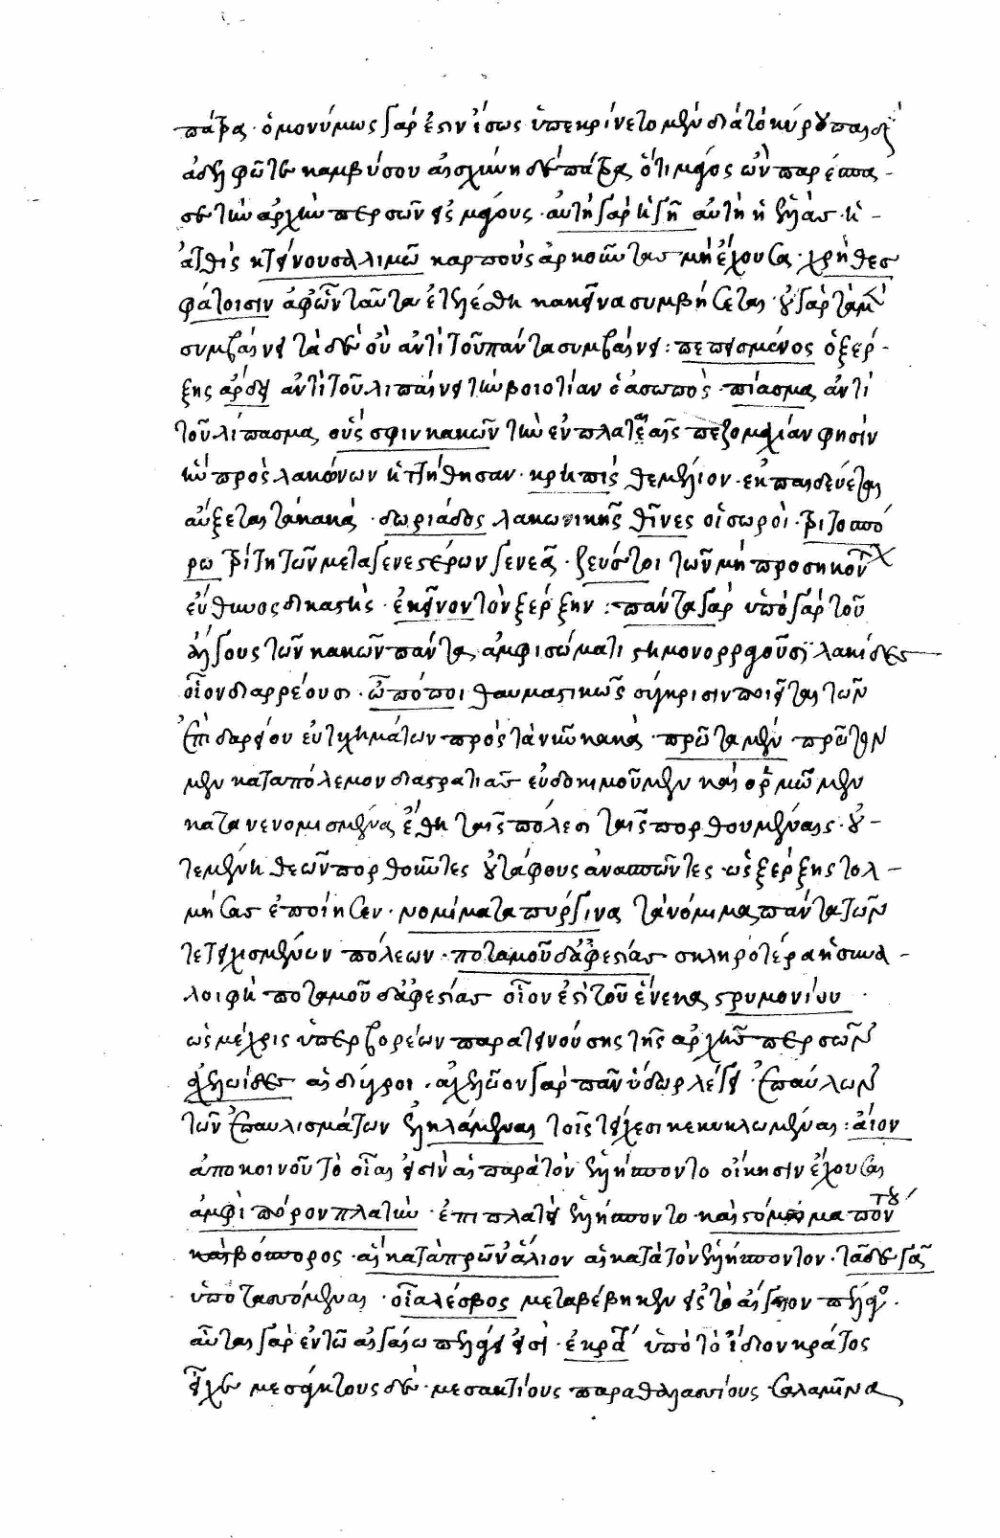 πάτρᾳ · ὁμωνύμως γάρ ἐστιν ἴσως ὑπεκρίνετο μὲν διὰ τὸ κύρου παῖδ
ἀδελφῶ τε καμβύσου αἰσχύνη δὲ πάτρᾳ ὅτι μάγος ὢν παρέσπα-
σε τὴν ἀρχὴν περσῶν εἰς μάγους · αὐτὴ γὰρ ἡ γῆ αὐτὴ ἡ ἑλλὰς · ἡ
ἀτθὶς κτείνουσα λιμῶ καρποὺς ἀρκοῦντας μὴ ἔχουσα · χρὴ θεσ
φάτοισιν ἀφ' ὧν ταῦτα ἐτελέσθη κακεῖνα συμβήσεται · οὐ γὰρ τὰ μὲν
συμβαίνει τὰ δ' οὐ ἀντὶ τοῦ πάντα συμβαίνει : πεπεισμένος ὁ ξέρ-
ξης ἄρδει ἀντὶ τοῦ λιπαίνει τὴν βοιοτίαν ὁ ἀσωπὸς · πίασμα ἀντὶ
τοῦ λίπασμα, οὗ σφιν κακῶν τὴν ἐν πλαταιαῖς πεζομαχίαν φησὶν
ἣν πρὸς λακώνων ἡττήθησαν · κρηπὶς θεμέλιον · ἐκπαιδεύεται
αὔξεται τὰ κακά · δωριάδος λακωνικῆς θῖνες οἱ σωροὶ · τριτοσπό
ρω τρίτη τῶν μετα γενεστέρων γενεᾶ · ζεύς τοι τῶν μὴ προσηκόντ
εὔθυνος δικαστὴς · ἐκεῖνον τὸν ξέρξην : πάντα γὰρ ὑπὸ γὰρ τοῦ
ἄλγους τῶν κακῶν πάντα ἀμφὶ σώματι στημονορραγοῦσι λακίδες
οἷον διαρρέουσι · ὦ πόποι θαυμαστικῶς σύγκρισιν ποιεῖται τῶν
ἐπὶ δαρείου εὐτυχημάτων πρὸς τὰ νῦν κακὰ · πρῶτα μὲν πρῶτον
μὲν κατα πόλεμον διαστρατιᾶς εὐδοκιμοῦμεν καὶ ὁρμῶμεν
κατα νενομισμένα ἔθη ταῖς πόλεσι ταῖς πορθουμέναις · οὐ-
τεμένη θεῶν πορθοῦντες οὐ τάφους ἀνασπῶντες · ὡς ξέρξης τολ-
μήσας ἐποίησεν · νομίματα πύργινα τὰ νόμιμα πάντα τῶν
τετειχισμένων πόλεων · ποταμοῦ δ' ἀφεσίας σκληροτέρα ἡ συνα-
λοιφὴ ποταμοῦ δ' ἀφεσίας οἷον ἐστὶ τοῦ ἕνεκα στρυμονίου
ὡς μέχρις ὑπερβορέων παρατεινούσης τῆς ἀρχῆς περσῶν
ἀχελωίδες αἱ δίυγροι · ἀχελῶον γὰρ πᾶν ὕδωρ λέγει · ἐπαύλων
τῶν ἐπαυλισμάτων ἐληλάμεναι τοῖς τείχεσι κεκυκλωμέναι : ἄιον
ἀπο κοινοῦ τὸ οἷαι εἰσὶν αἱ παρὰ τὸν ἑλλήσποντο οἴκησιν ἔχουσαι
ἀμφὶ πόρον πλατὺν · ἐπι πλατεῖ ἑλλήσποντο · καὶ στόμωμα πόντου
καὶ βόσπορος · αἱ κατὰ πρῶν' ἅλιον αἱ κατὰ τὸν ἑλλήσποντον · τᾶσδε γᾶς
ὑποτασσόμεναι · οἷα λέσβος μεταβέβηκεν εἰς τὸ αἰγαῖον πέλαγος ·
αὗται γὰρ ἐν τῶ αἰγαίω πελάγει εἰσί · ἐκράτει ὑπὸ τὸ ἴδιον κράτος
εἶχε μεσάκτους δὲ · μεσακτίους παραθαλασσίους · σαλαμῖνα